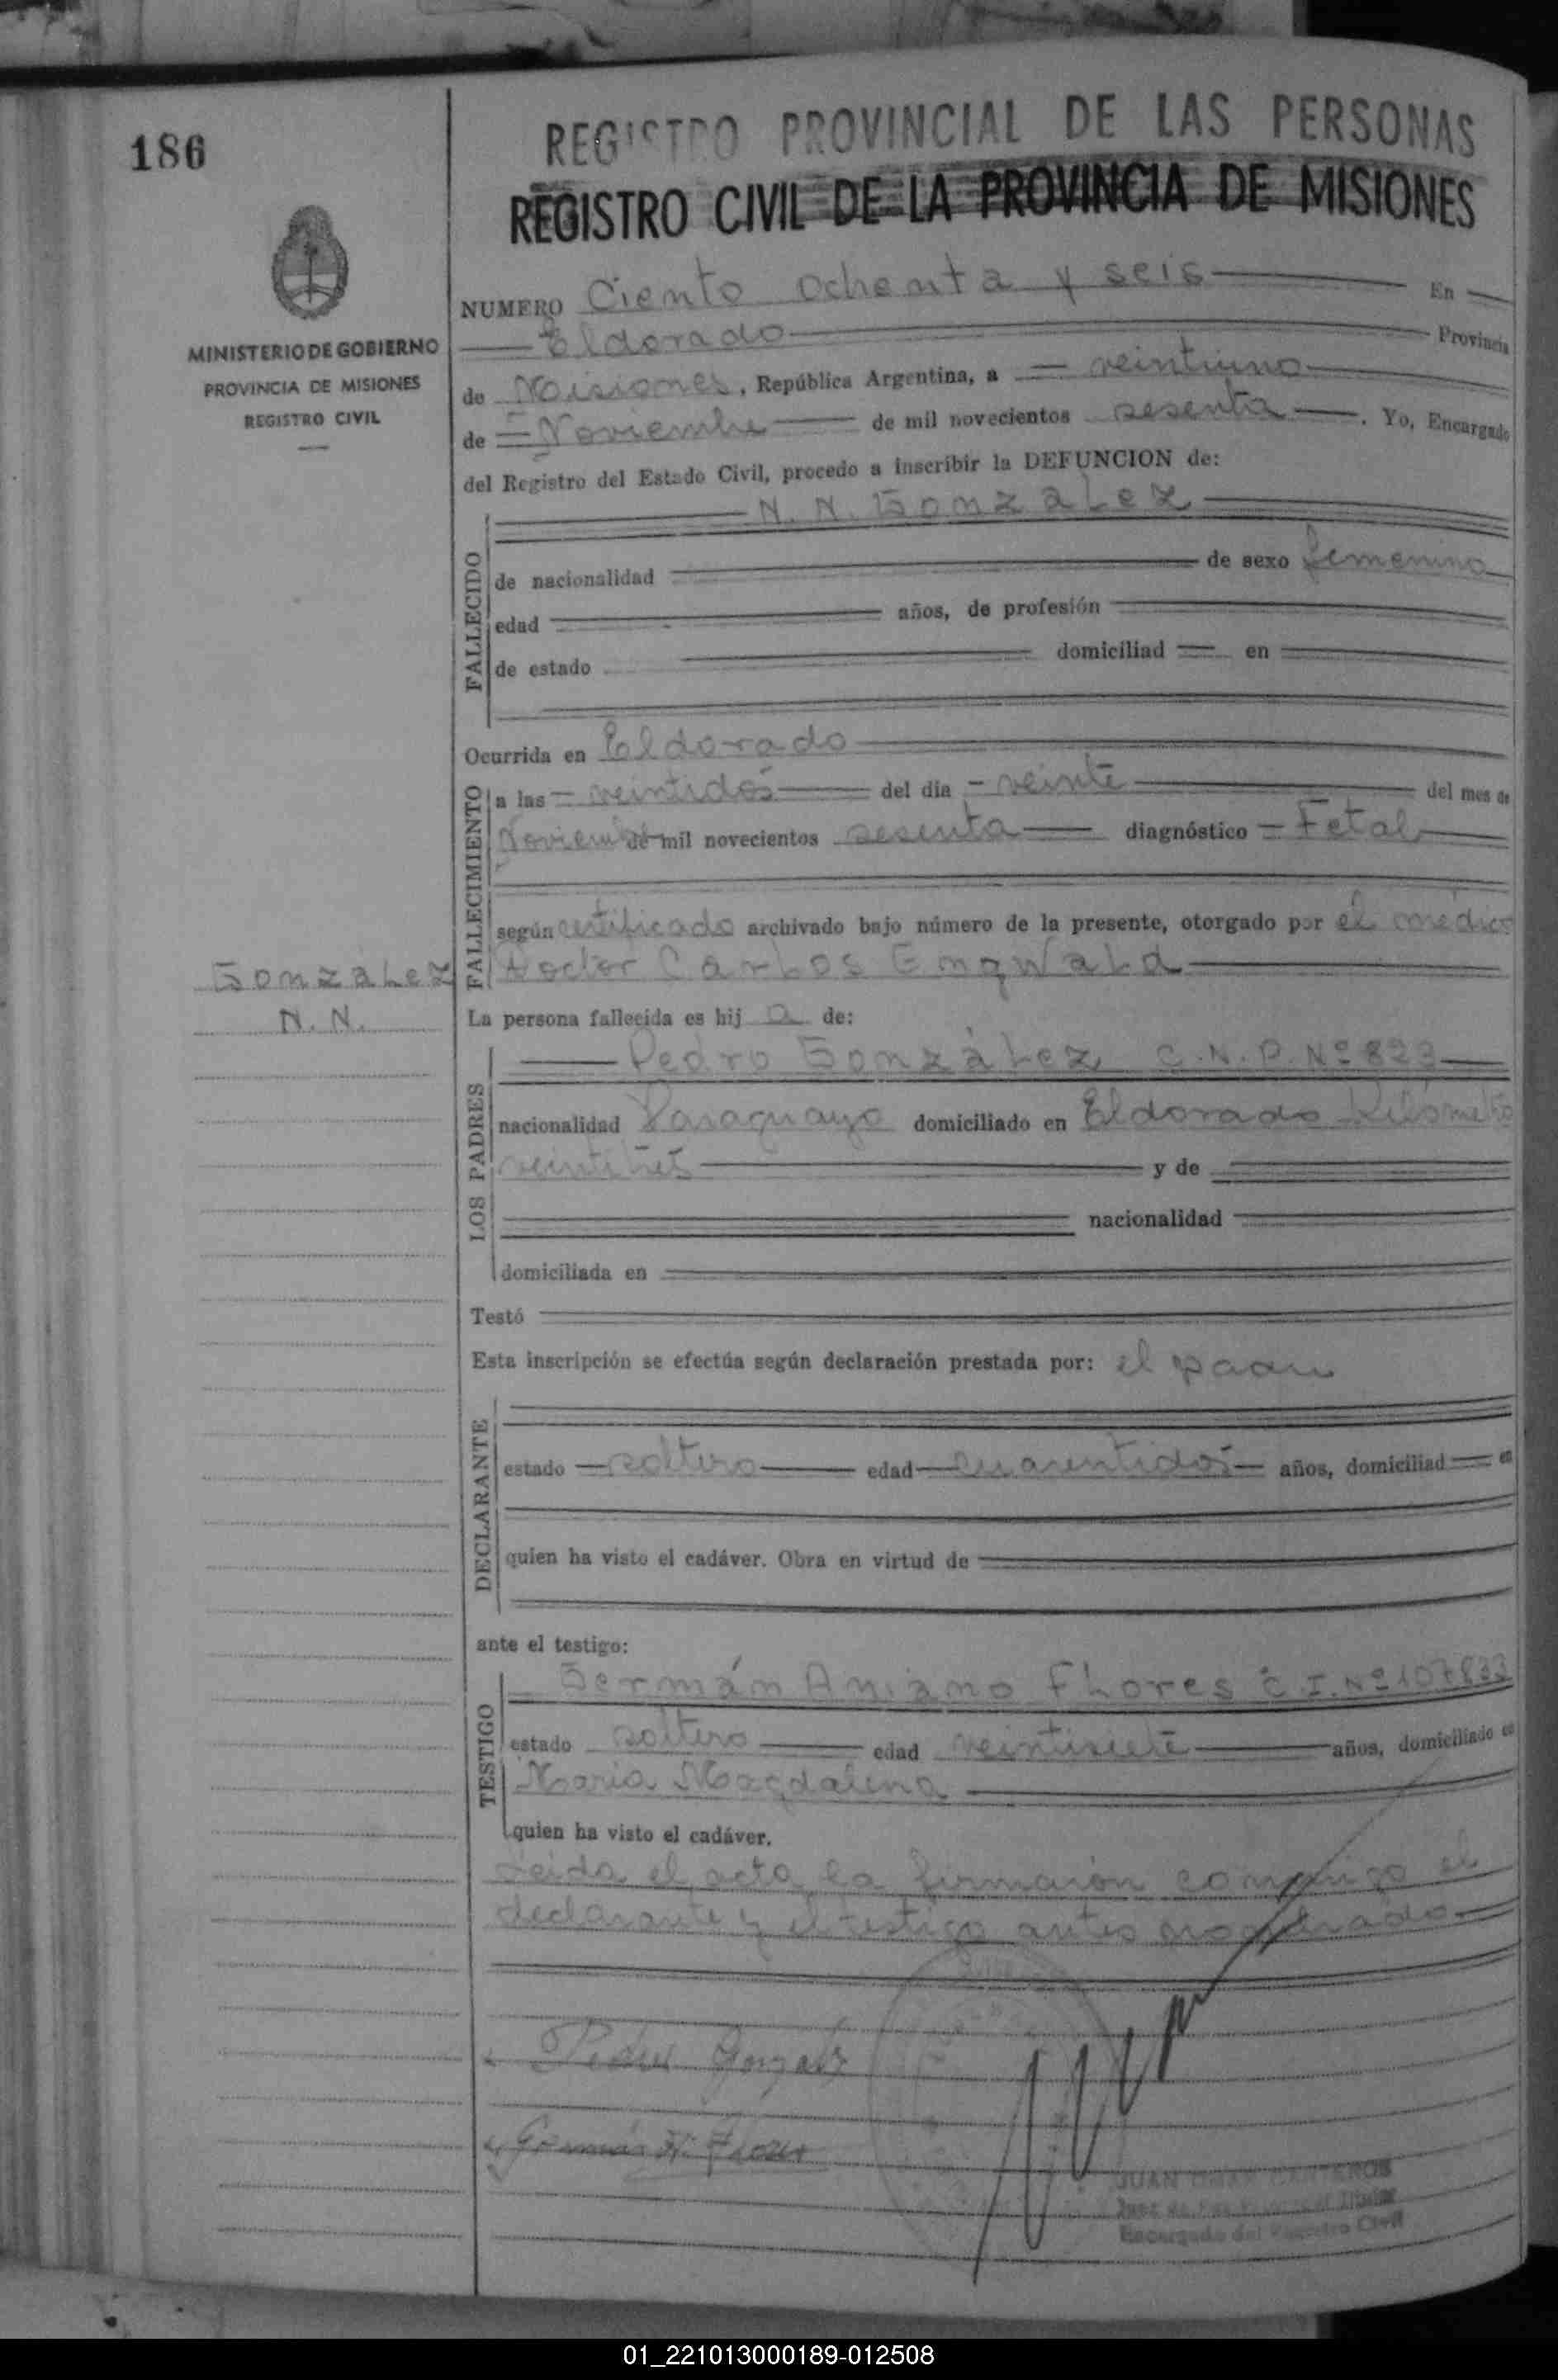 186
REGISTRO PROVINCIAL DE LAS PERSONAS
REGISTRO CIVIL DE LA PROVINCIA DE MISIONES
MINISTERIO DE GOBIERNO
PROVINCIA DE MISIONES
REGISTRO CIVIL
NUMERO Ciento ochenta y seis En
Eldorado Provincia
de Misiones, República Argentina, a veintiuno
de Noviembre de mil novecientos sesenta. Yo, Encargado
del Registro del Estado Civil, procedo a inscribir la DEFUNCION de:
N. N. Gonzalez
FALLECIDO
de nacionalidad de sexo femenino
edad años, de profesión
de estado domiciliad en
Ocurrida en Eldorado
FALLECIMIENTO
a las veintidos del día veinte del mes de
Noviembre de mil novecientos sesenta diagnóstico Fetal
según certificado archivado bajo número de la presente, otorgado por el médico
Doctor Carlos Engwald
Gonzalez
N. N.
La persona fallecida es hij a de:
LOS PADRES
Pedro González C.N.P. Nº 823
nacionalidad Paraguayo domiciliado en Eldorado Kilómetro
veintitres y de
nacionalidad
domiciliada en
Testó
Esta inscripción se efectúa según declaración prestada por: el padre
DECLARANTE
estado soltero edad cuarentidos años, domiciliad en
quien ha visto el cadáver. Obra en virtud de
ante el testigo:
TESTIGO
Germán Aniano Flores C.I. Nº 107833
estado soltero edad veintisiete años, domiciliado en
María Magdalena
quien ha visto el cadáver.
Leída el acta la firmaron conmigo el
declarante y el testigo antes nombrado
Pedro Gonzalez
Germán A. Flores
JUAN CANTEROS
Juez de Paz Titular
Encargado del Registro Civil
01_221013000189-012508